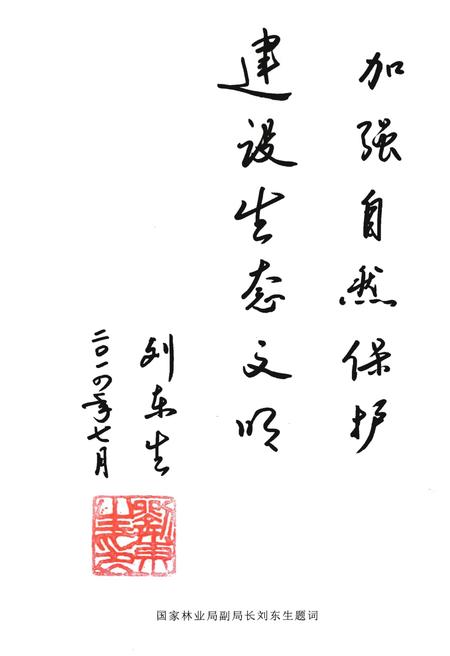 加强自然保护
建设生态文明
刘东生
二〇一四年七月
国家林业局副局长刘东生题词